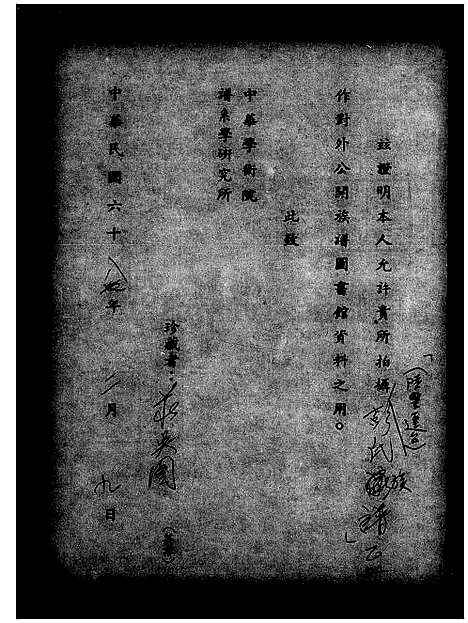 茲證明本人允許貴所拍攝「彭氏族譜」
作對外公開族譜圖書館資料之用。
此致
中華學術院
譜系學研究所
珍藏者：
中華民國六十八年二月九日